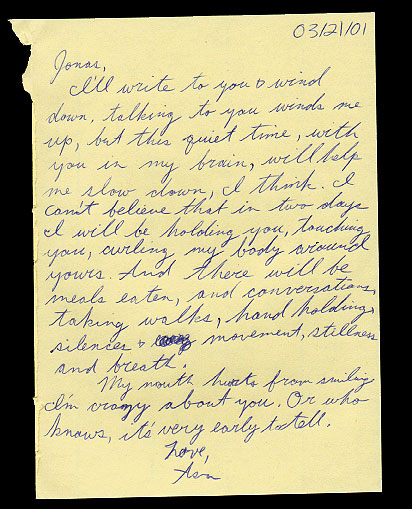 03/21/01
Jonas,
I'll write to you & wind
down, talking to you winds me
up, but this quiet time, with
you in my brain, will help
me slow down, I think. I
can't believe that in two days
I will be holding you, touching
you, curling my body around
yours. And there will be
meals eaten, and conversations,
taking walks, hand holding,
silences & movement, stillness
and breath.
My mouth hurts from smiling
I'm crazy about you. Or who
knows, it's very early to tell.
Love,